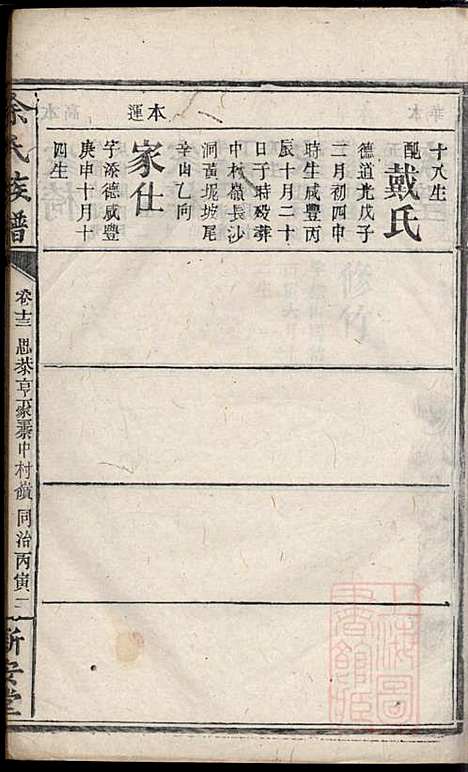 本運
十八生
配戴氏
德道光戊子
二月初四申
時生咸豐丙
辰十月二十
日子時歿葬
中村嶺長沙
洞黃坭坡尾
辛山乙向
家仕
字添德咸豐
庚申十月十
四生
余氏族譜
卷十三
思恭亨家業中村嶺
同治丙寅
新安堂
上海圖書館